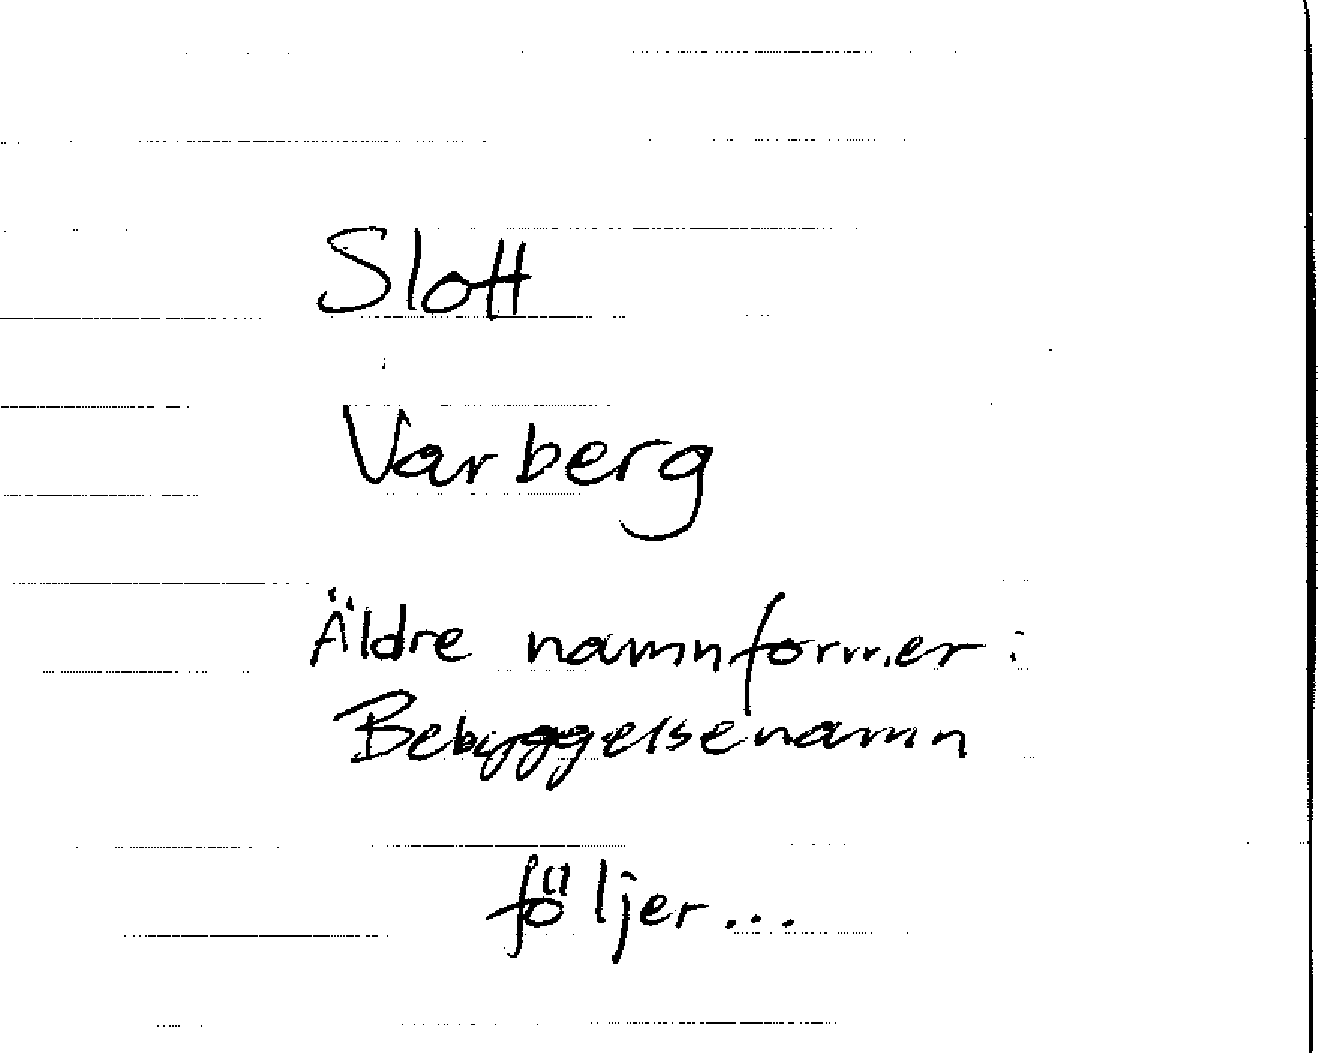 Slott
Varberg
Äldre namnformer:
Bebyggelsenamn
följer...